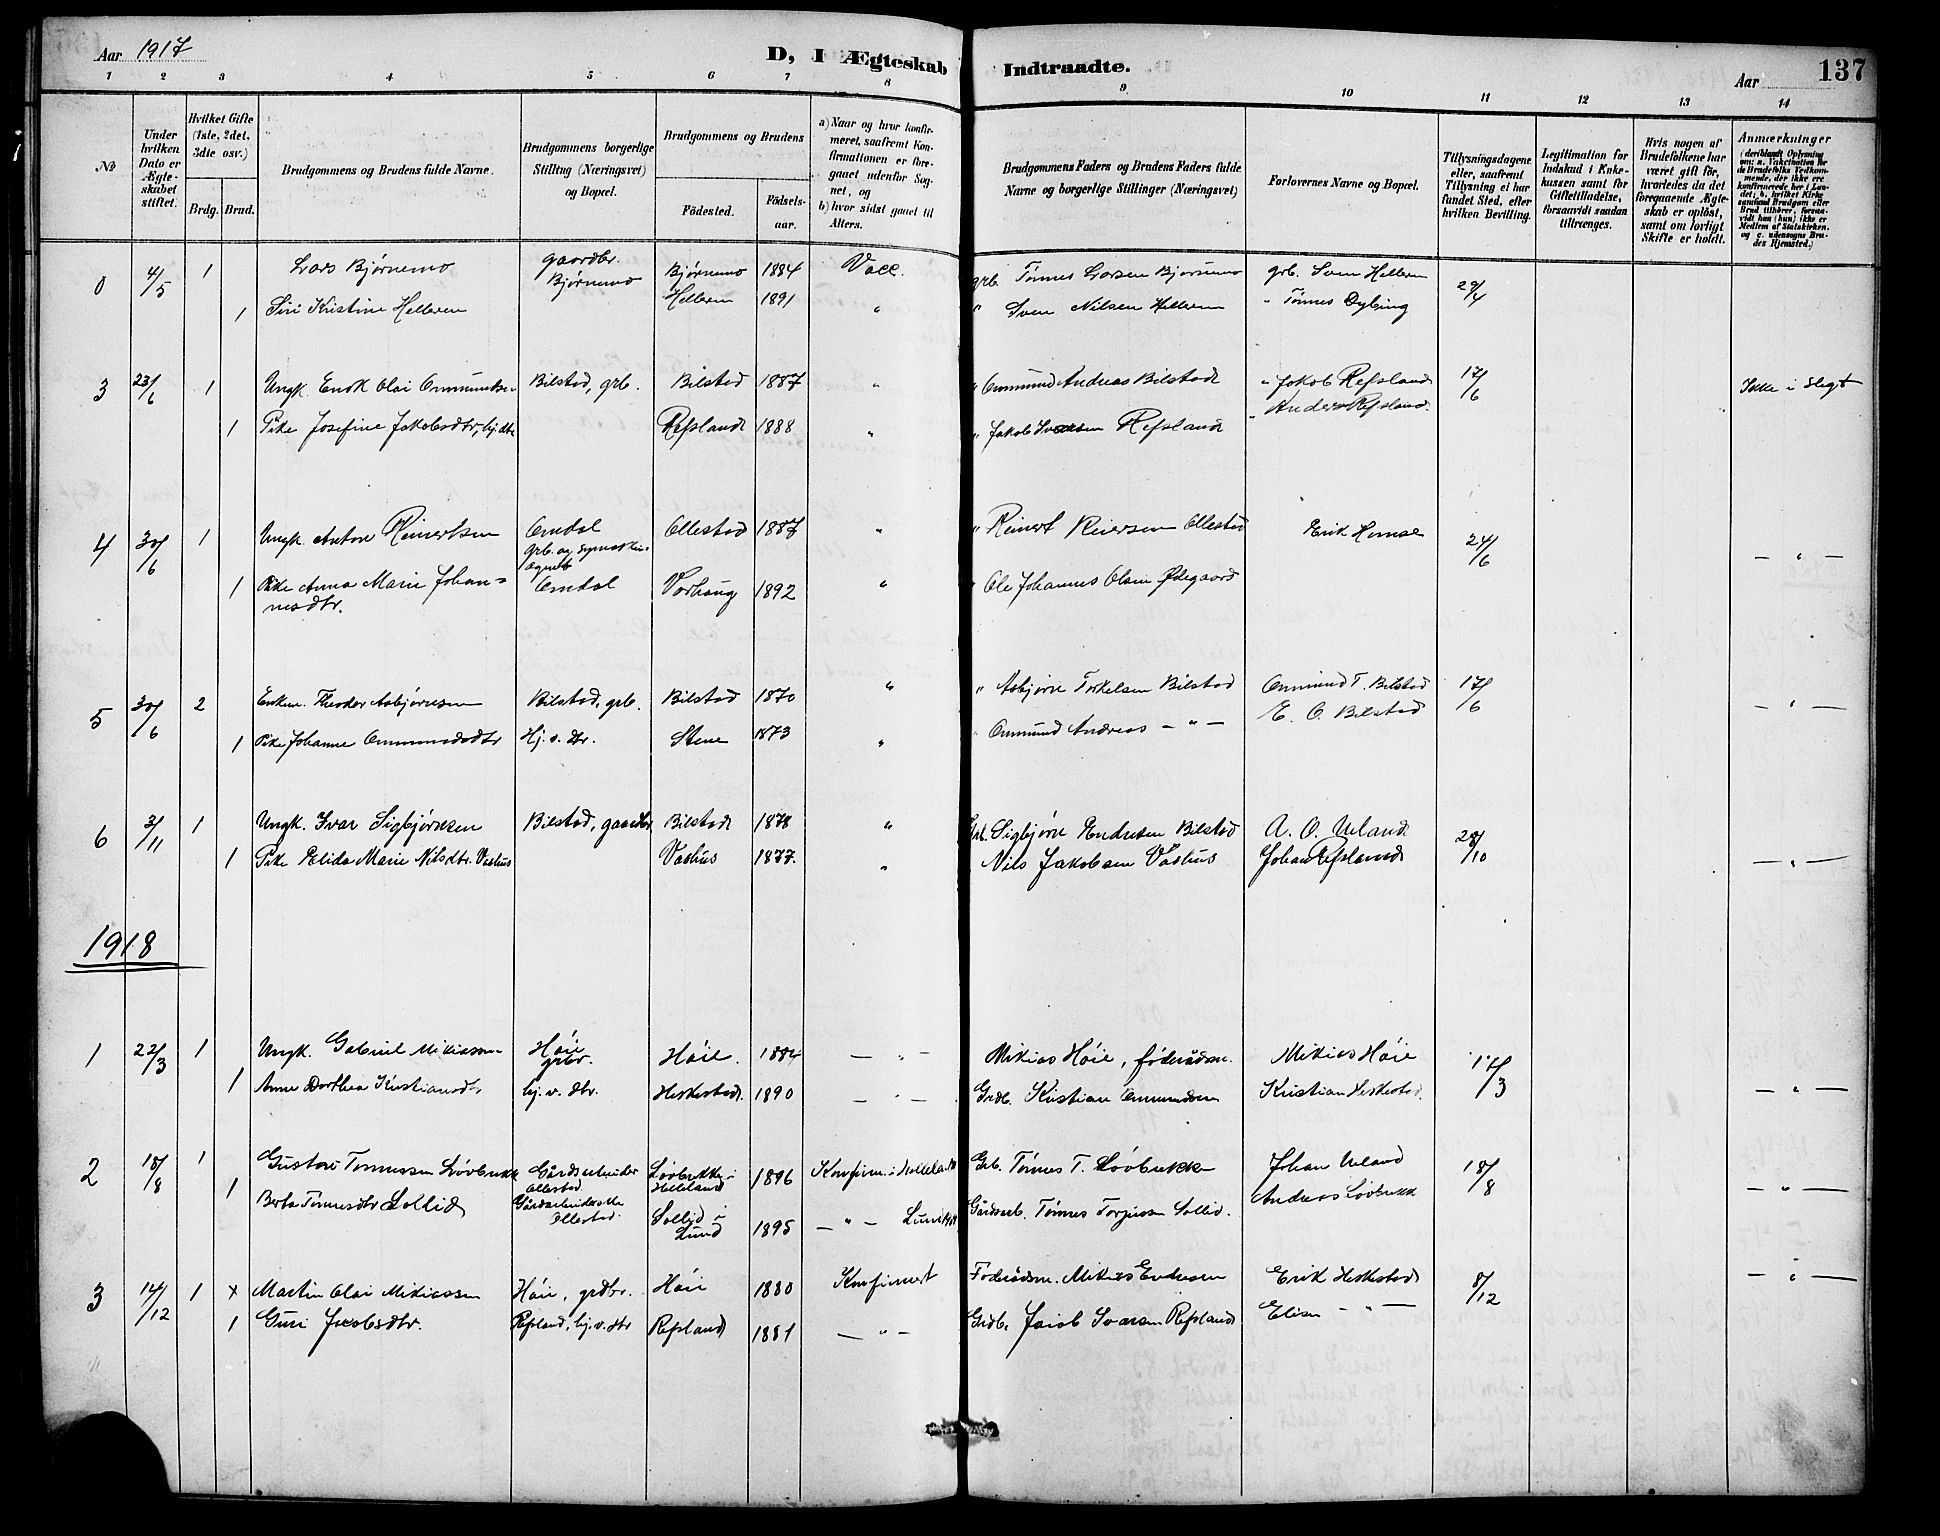 Aar 1917
D, I Ægteskab Indtraadte.
Aar
137
1 2 3 4 5 6 7 8 9 10 11 12 13 14
No
Under hvilken Dato er Ægte-skabet stiftet.
Hvilket Gifte (1ste, 2det, 3die osv.)
Brdg. Brud.
Brudgommens og Brudens fulde Navne.
Brudgommens borgerlige Stilling (Næringsvei) og Bopæl.
Brudgommens og Brudens
Födested.
Födsels-aar.
a) Naar og hvor konfir-meret, saafremt Kon-firmationen er fore-gaaet udenfor Sog-net, og
b) hvor sidst gaaet til Alters.
Brudgommens Faders og Brudens Faders fulde Navne og borgerlige Stillinger (Næringsvei)
Forlovernes Navne og Bopæl.
Tillysningsdagene eller, saafremt Tillysning ei har fundet Sted, efter hvilken Bevilling.
Legitimation for Indskud i Enke-kassen samt for Giftetilladelse, forsaavidt saadan tiltrænges.
Hvis nogen af Brudefolkene har været gift før, hvorledes da det foregaaende Ægte-skab er oplöst, samt om lovligt Skifte er holdt.
Anmærkninger
(deriblandt Oplysning om: a. Vakcination for de Brudefolks Vedkom-mende, der ikke ere konfirmerede her i Lan-det; b. hvilket Kirke-samfund Brudgom eller Brud tilhører, forsaa-vidt han (hun) ikke er Medlem af Statskirken, og c. udensogns Bru-des Hjemsted.)
0 4/5 1 Lars Bjørnemo gaardbr. Bjørnemo Bjørnemo 1884 Vacc. grb. Tønnes Larsen Bjørnemo grb. Sven Helleren 29/4
1 Siri Kristine Helleren Helleren 1891 " " Sven Nilsen Helleren " Tønnes Dybing
3 23/6 1 Ungk. Enok Olai Ommundsen Bilstad, grb. Bilstad 1887 " " Ommund Andreas Bilstad " Jakob Refsland 17/6 Ikke i slegt
1 Pike Josefine Jakobsdtr, hj. dtr Refsland 1888 " " Jakob Svensen Refsland " Anders Refsland.
4 30/6 1 Ungk. Anton Reinertsen Omdal grb. og symaskin-agent Ollestad 1887 " " Reinert Reiersen Ollestad Erik Homse 24/6 — " —
1 Pike Anna Marie Johan=nesdtr. Omdal Varhaug 1892 " " Ole Johannes Olsen Ødegaard
5 30/6 2 Enkem. Theodor Asbjørnsen Bilstad, grb. Bilstad 1870 " " Asbjørn Torkelsen Bilstad Ommund T. Bilstad 17/6 — " —
1 Pike Johanne Ommundsdtr Hj. v. dtr. Stene 1873 " " Ommund Andreas — " — E. O. Bilstad
6 3/11 1 Ungk. Ivar Sigbjørnsen Bilstad, gaardbr Bilstad 1878 " Grb. Sigbjørn Endresen Bilstad A. O. Ueland 28/10
1 Pike Elida Marie Nilsdtr. Vashus Vashus 1877. " Nils Jakobsen Vashus Johan Refsland — " —
1918
1 22/3 1 Ungk. Gabriel Mikiassen Høie grbr. Høie. 1884 — " — Mikias Høie, føderådsm. Mikias Høie 17/3
1 Anne Dorthea Kristiansdtr hj. v. dtr. Heskestad. 1890 — " — Grdb. Kristian Ommundsen Kristian Heskestad. — " —
2 18/8 1 Gustav Tønnessen Løvbrekk Gårdsarbeider Ollestad Løvbrekke i Helleland 1896 Konfirm. i Helleland Grb. Tønnes T. Løvbrekk Johan Ueland 18/8
1 Berta Tønnesdtr Sollid Gårdsarbeiderske Ollestad. Sollid i Lund 1895 — " — Lund Gårdsarb. Tønnes Torjussen Sollid. Andreas Løvbrekk — " —
3 14/12 1 x Martin Olai Mikiassen Høie, grdbr. Høie 1880 Konfirmert Føderådsm. Mikias Endresen Erik Heskestad 8/12 — " —
1 Guri Jacobsdtr. Refsland, hj. v. dtr Refsland 1881 — " — Grdb. Jacob Svensen Refsland Elisa — " —